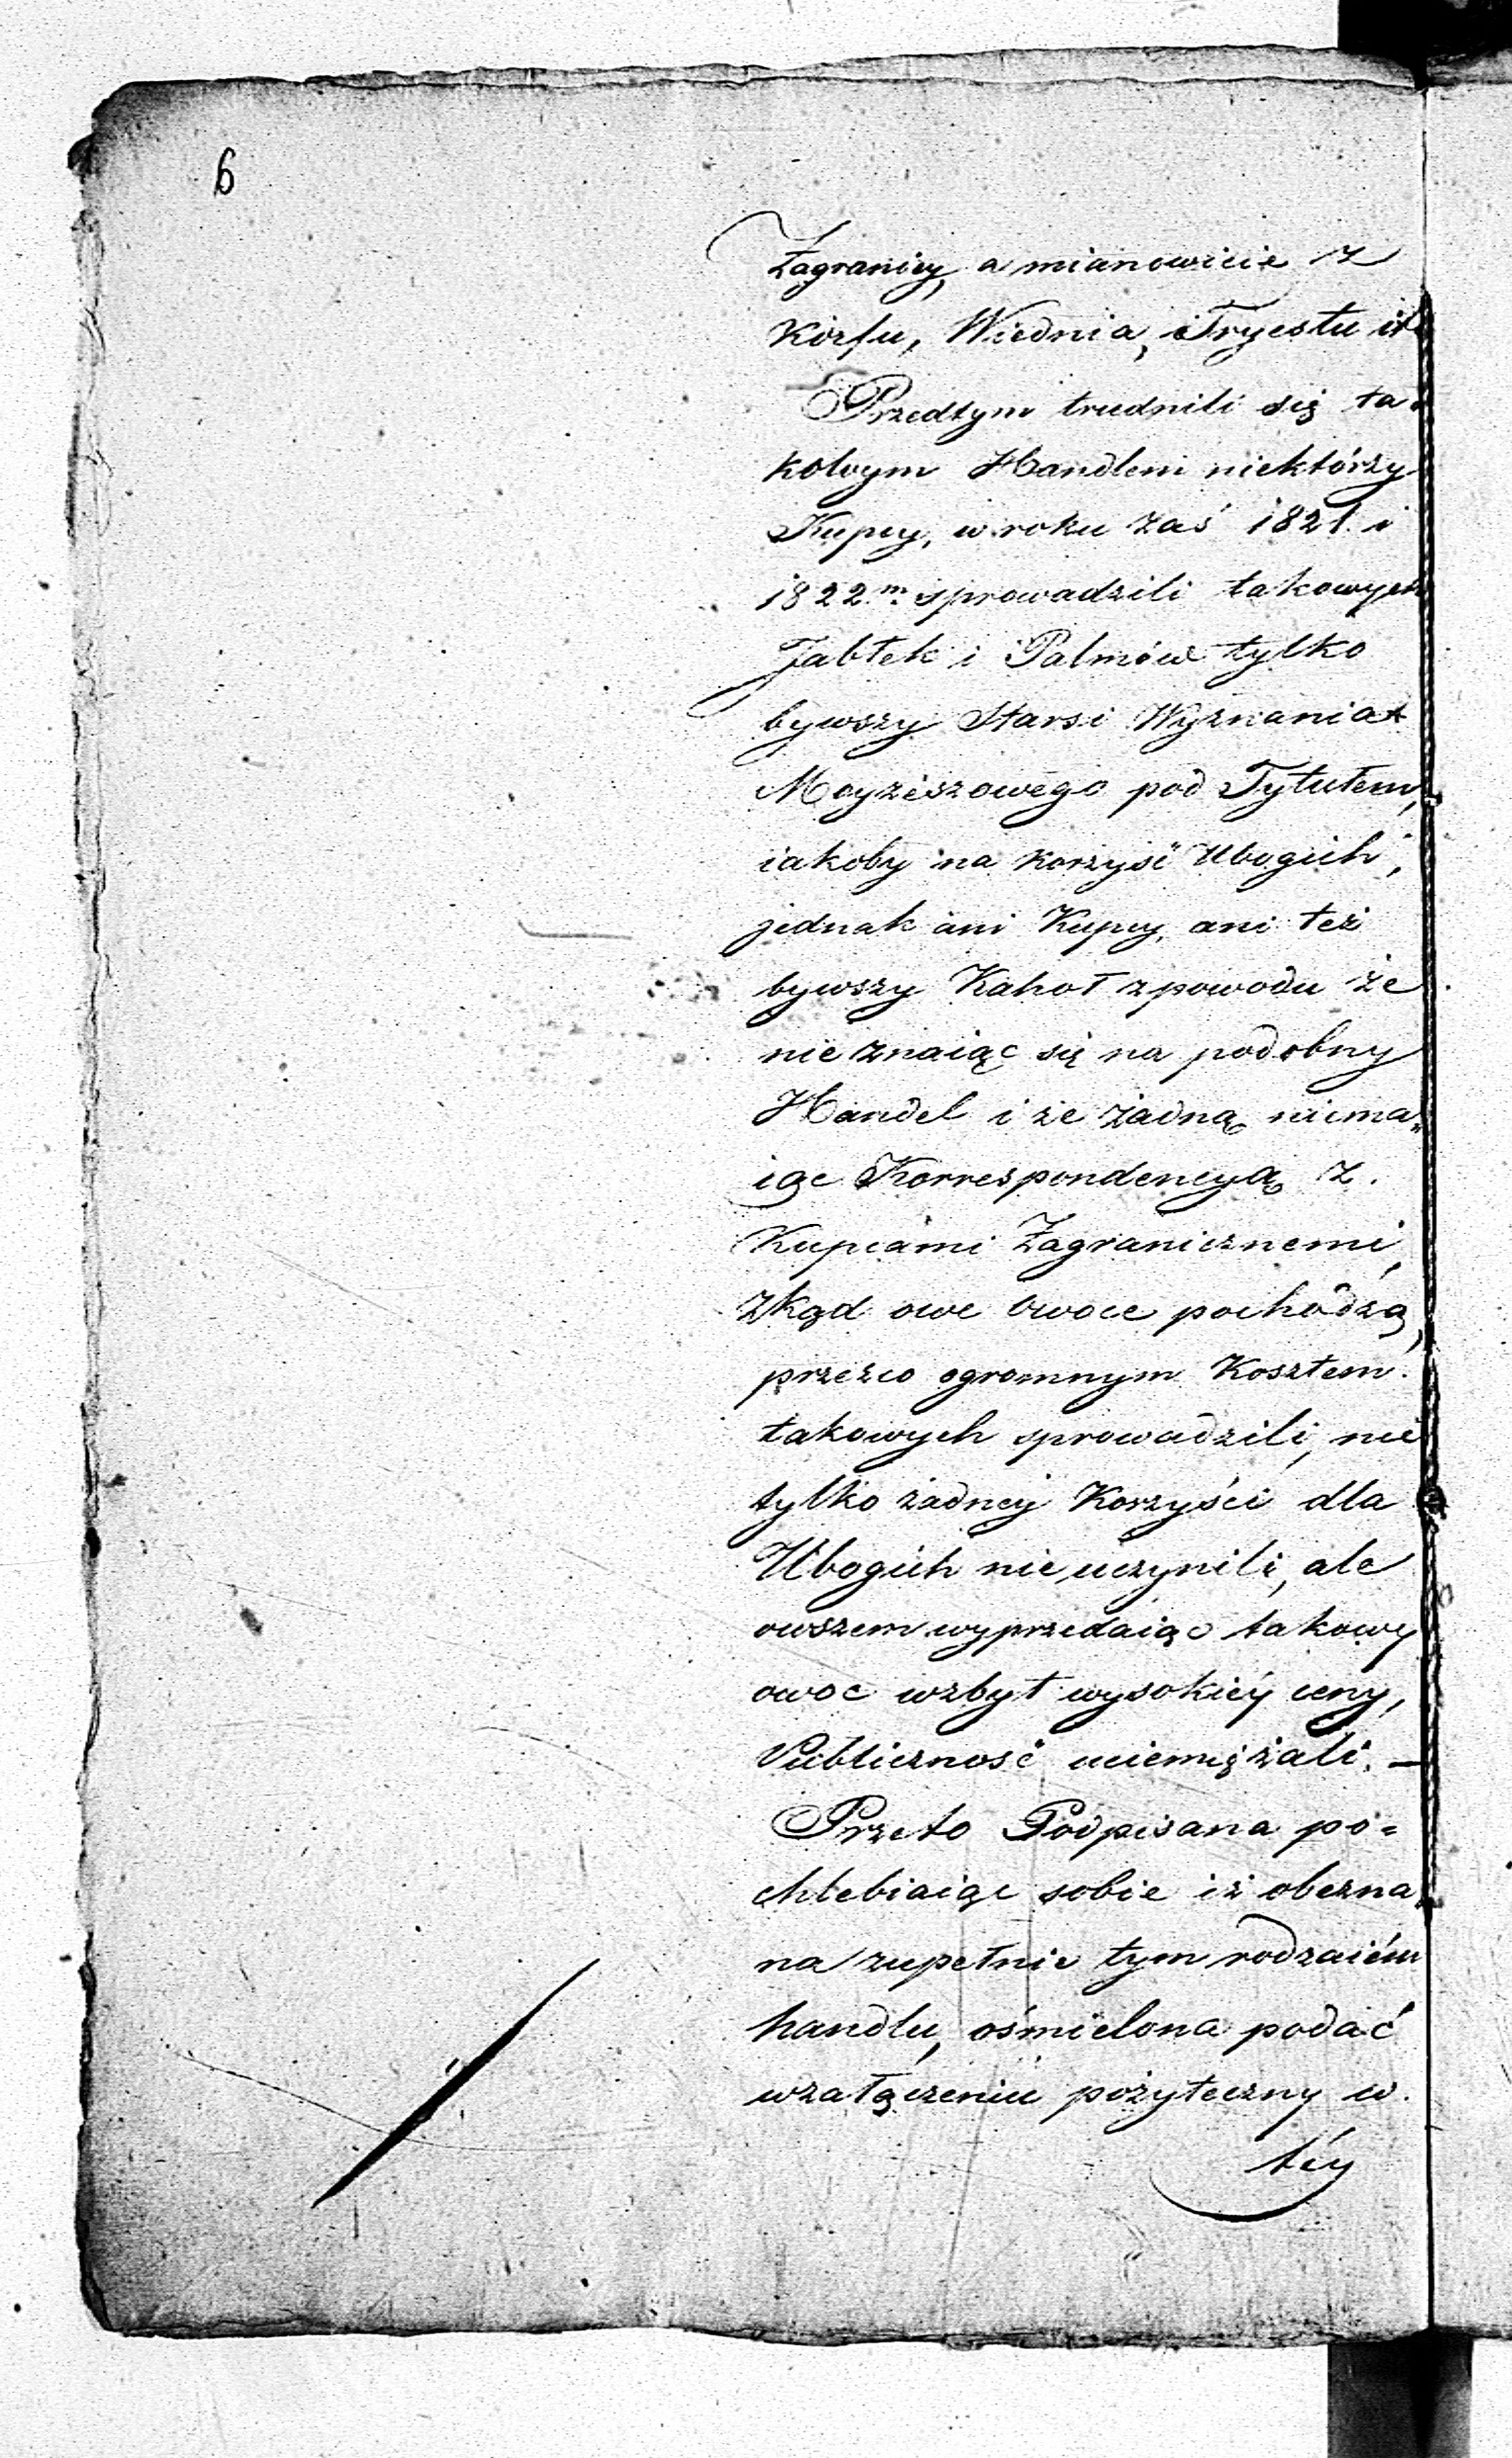 6
Zagranicy, a mianowicie z
Korfu, Wiednia, i Tryestu it
Przedtym trudnili się ta
kowym Handlem niektórzy
Kupcy, w roku zaś 1821. i
1822.m sprowadzili takowych
Jabłek i Palmów tylko
bywszy Starsi Wyznania
Moyżeszowego pod Tytułem,
iakoby na korzyść Ubogich,
jednak ani Kupcy, ani też
bywszy Kahoł zpowodu że
nie znaiąc się na podobny
Handel i że żadną niema„
iąc Korrespondencyą z.
Kupcami Zagranicznemi,
zkąd owe owoce pochodzą,
przezco ogromnym Kosztem.
takowych sprowadzili, nie
tylko żadney Korzyści dla
Ubogich nie uczynili, ale
owszem wyprzedaiąc takowy
owoc wzbyt wysokiéy ceny,
Publiczność uciemiężali. —
Przeto Podpisana po=
chlebiaiąc sobie iż obezna
na zupełnie tym rodzaiém
handlu, ośmielona podać
wzałączeniu pożyteczny w.
téy